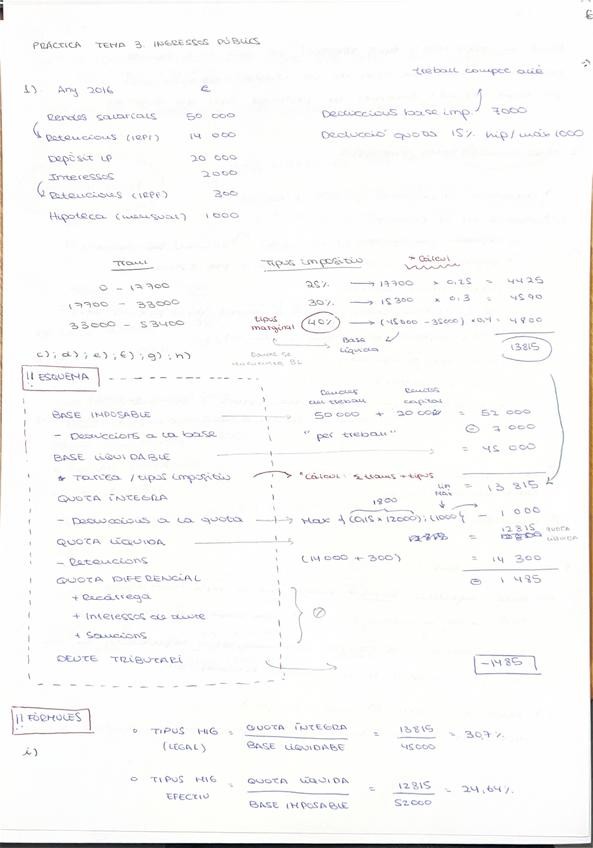 PRÀCTICA TEMA 3. INGRESSOS PÚBLICS
treball compte aliè
1) Any 2016 €
Rendes salarials 50 000 Deduccions base imp. 7000
Retencions (IRPF) 14 000 Deducció quota 15% hip/màx 1000
Depòsit LP 20 000
Interessos 2000
Retencions (IRPF) 300
Hipoteca (mensual) 1000
Tram Tipus impositiu * Càlcul
0 - 17700 25% → 17700 × 0,25 = 4425
17700 - 33000 30% → 15300 × 0,3 = 4590
33000 - 53400 tipus marginal 40% → (45000 - 35000) × 0,4 = 4800
Base Líquida
13815
c); d); e); f); g); h)
!! ESQUEMA
Rendes del treball Rendes capital
BASE IMPOSABLE → 50 000 + 2000 = 52 000
- Deduccions a la base "per treball" - 7 000
BASE LIQUIDABLE → = 45 000
* Tarifa / tipus impositiu → *Càlcul: Σ trams + tipus
QUOTA ÍNTEGRA = 13 815
1800 LIM MÀX
- Deduccions a la quota → Max {(0,15 × 12000); (1000} - 1 000
QUOTA LÍQUIDA → = 12815 QUOTA LÍQUIDA
- Retencions (14 000 + 300) = 14 300
QUOTA DIFERENCIAL - 1 485
+ Recàrrega
+ Interessos de deute
+ Sancions
DEUTE TRIBUTARI → -1485
!! FÓRMULES
i)
○ TIPUS MIG (LEGAL) = QUOTA ÍNTEGRA / BASE LIQUIDABE = 13815 / 45000 = 30,7%
○ TIPUS MIG EFECTIU = QUOTA LÍQUIDA / BASE IMPOSABLE = 12815 / 52000 = 24,64%